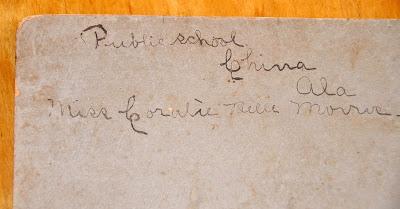 Public school
China
Ala
Miss Coralie Nell Morris